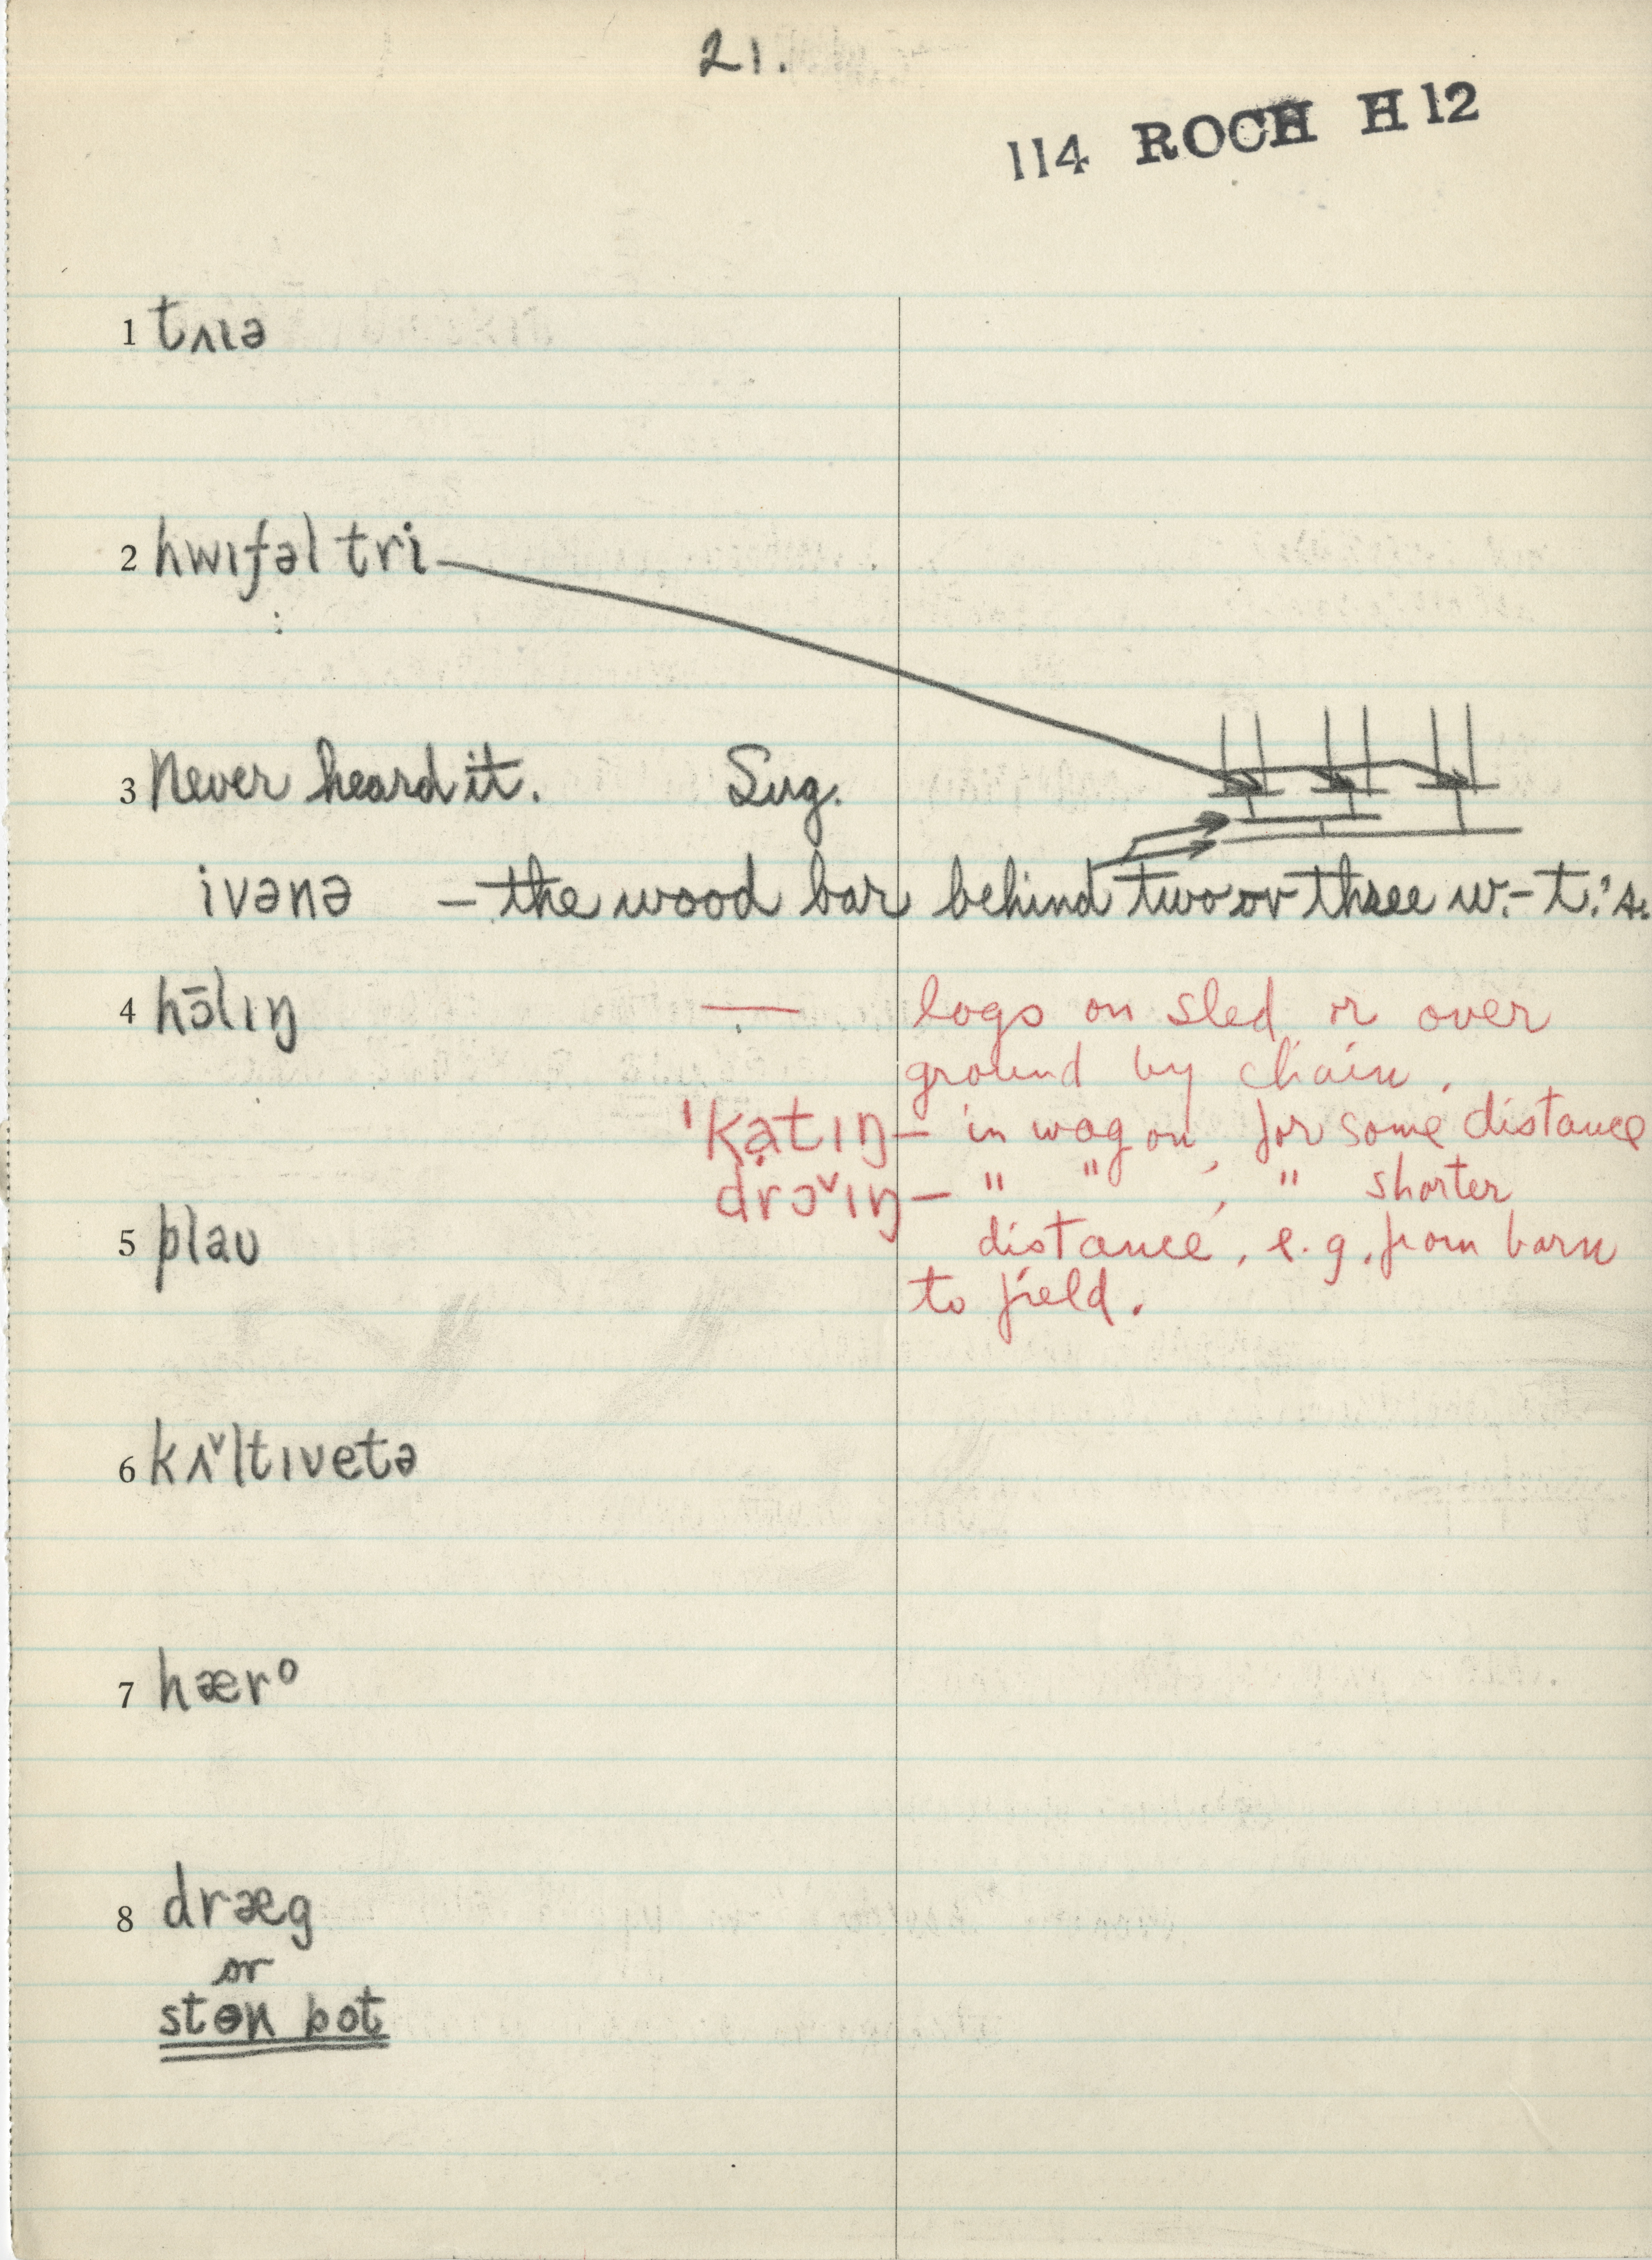 21.
114 ROCH H 12
1 tʌɪə
2 hwɪfəl tri
3 Never heard it. Sug.
ivənə – the wood bar behind two or three w.-t.'s.
4 hɔ̄lɪŋ — logs on sled, or over
ground by chain.
'kạtɪŋ – in wagon, for some distance
drɔˇɪŋ – " " , " shorter
5 plaʊ
distance, e.g. from barn
to field.
6 kʌˇltɪvetə
7 hærᵒ
8 dræg
or
stɵn bot